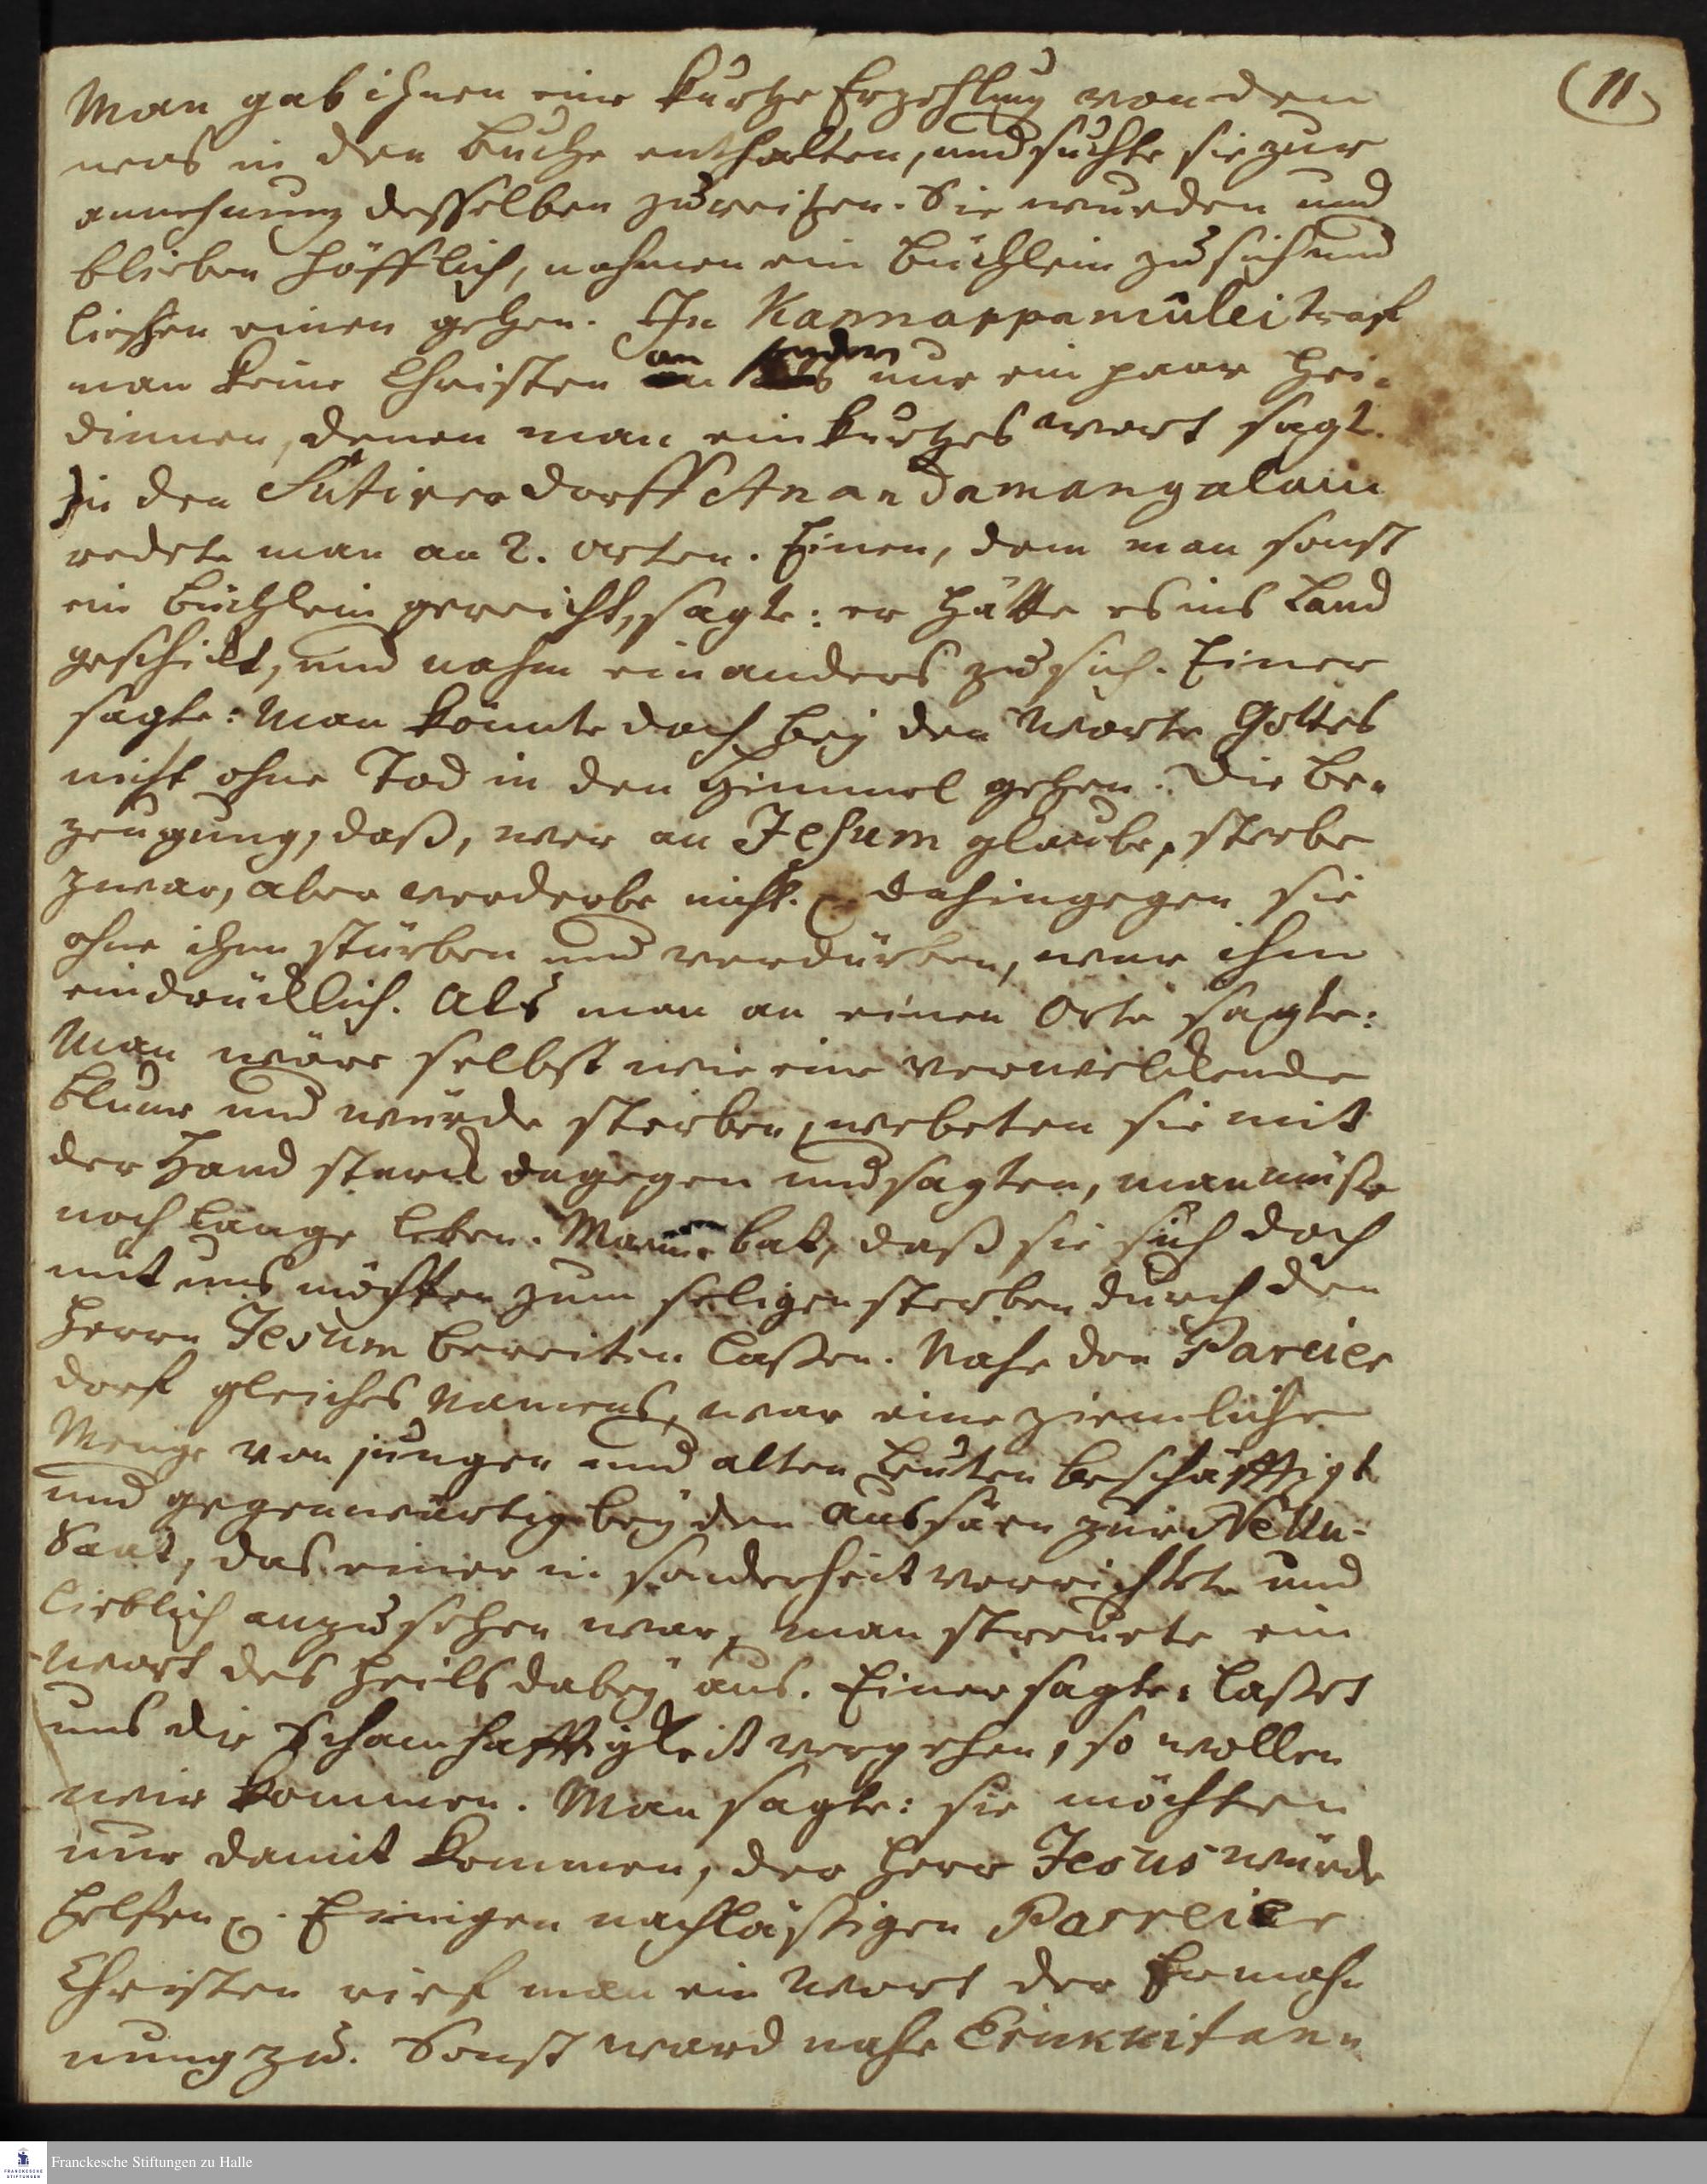 (11)
Man gab ihnen eine kurtze Erzehlung von den
was in den Buche enthalten, und suchte sie zur
annehmung desselben zu reitzen. Sie wurden und
blieben höfflich, nahmen ein Büchlein zu sich und
liessen einen gehen. In Kannappamúlei traf
man keine Christen an sondern nur ein paar Hei-
dinnen, denen man ein kurtzes wort sagt.
In den Sutirer dorff Anandamangalam
redete man an 2. orten. Einer, dem man sonst
ein Büchlein gereicht, sagte: er hätte es ins Land
geschickt, und nahm ein anders zu sich. Einer
sagte: Man könnte doch bey den Worte Gottes
nicht ohne Tod in den Himmel gehen. Die Be-
zeugung, daß, wer an Jesum glaube, sterbe
zwar, aber verderbe nicht. dahingegen sie
ohne ihm stürben und verdürben, war ihm
eindrücklich. Als man an einen Orte sagte:
Man wäre selbst wie eine verwelckende
Blume und würde sterben, webeten sie mit
der Hand starck dagegen und sagten, man müste
noch lange leben. Man bat, daß sie sich doch
mit uns möchten zum seligen sterben durch den
Herrn Jesum bereiten laßen. Nahe den Pareier
dorf gleiches Namens, war eine ziemliche
Menge von jungen und alten Leuten beschäfftigt
und gegenwärtig bey den aussäen zur Nellu-
Saat, das einer in sonderheit verrichtete und
lieblich anzusehen war, man streuete ein
Wort des Heils dabey aus. Einer sagte: laßet
uns die Schamhafftigkeit vergehen, so wollen
wir kommen. Man sagte: sie möchten
nur damit kommen, der Herr Jesus würde
helfen. Einigen nachläßigen Parreier
Christen rief man ein Wort der Ermah
nung zu. Sonst ward nahe Erukkitan-
Franckesche Stiftungen zu Halle
FRANCKESCHE
STIFTUNGEN